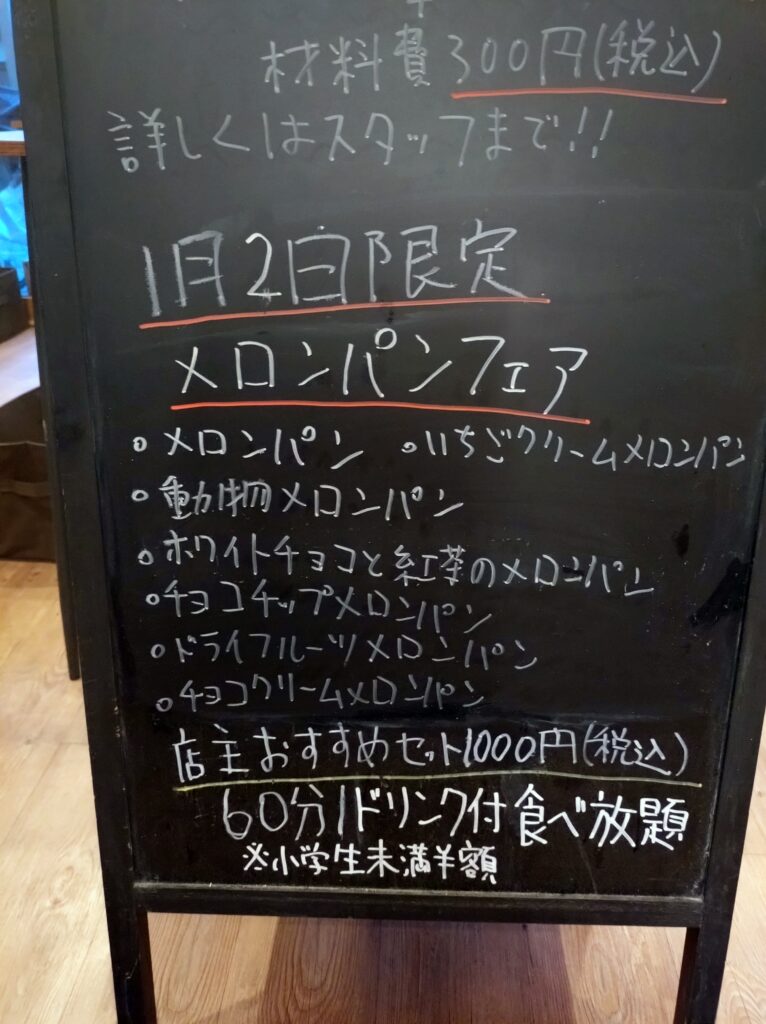 材料費300円(税込)
詳しくはスタッフまで!!
1月2日限定
メロンパンフェア
。メロンパン 。いちごクリームメロンパン
。動物メロンパン
。ホワイトチョコと紅茶のメロンパン
。チョコチップメロンパン
。ドライフルーツメロンパン
。チョコクリームメロンパン
店主おすすめセット1000円(税込)
60分1ドリンク付食べ放題
※小学生未満半額